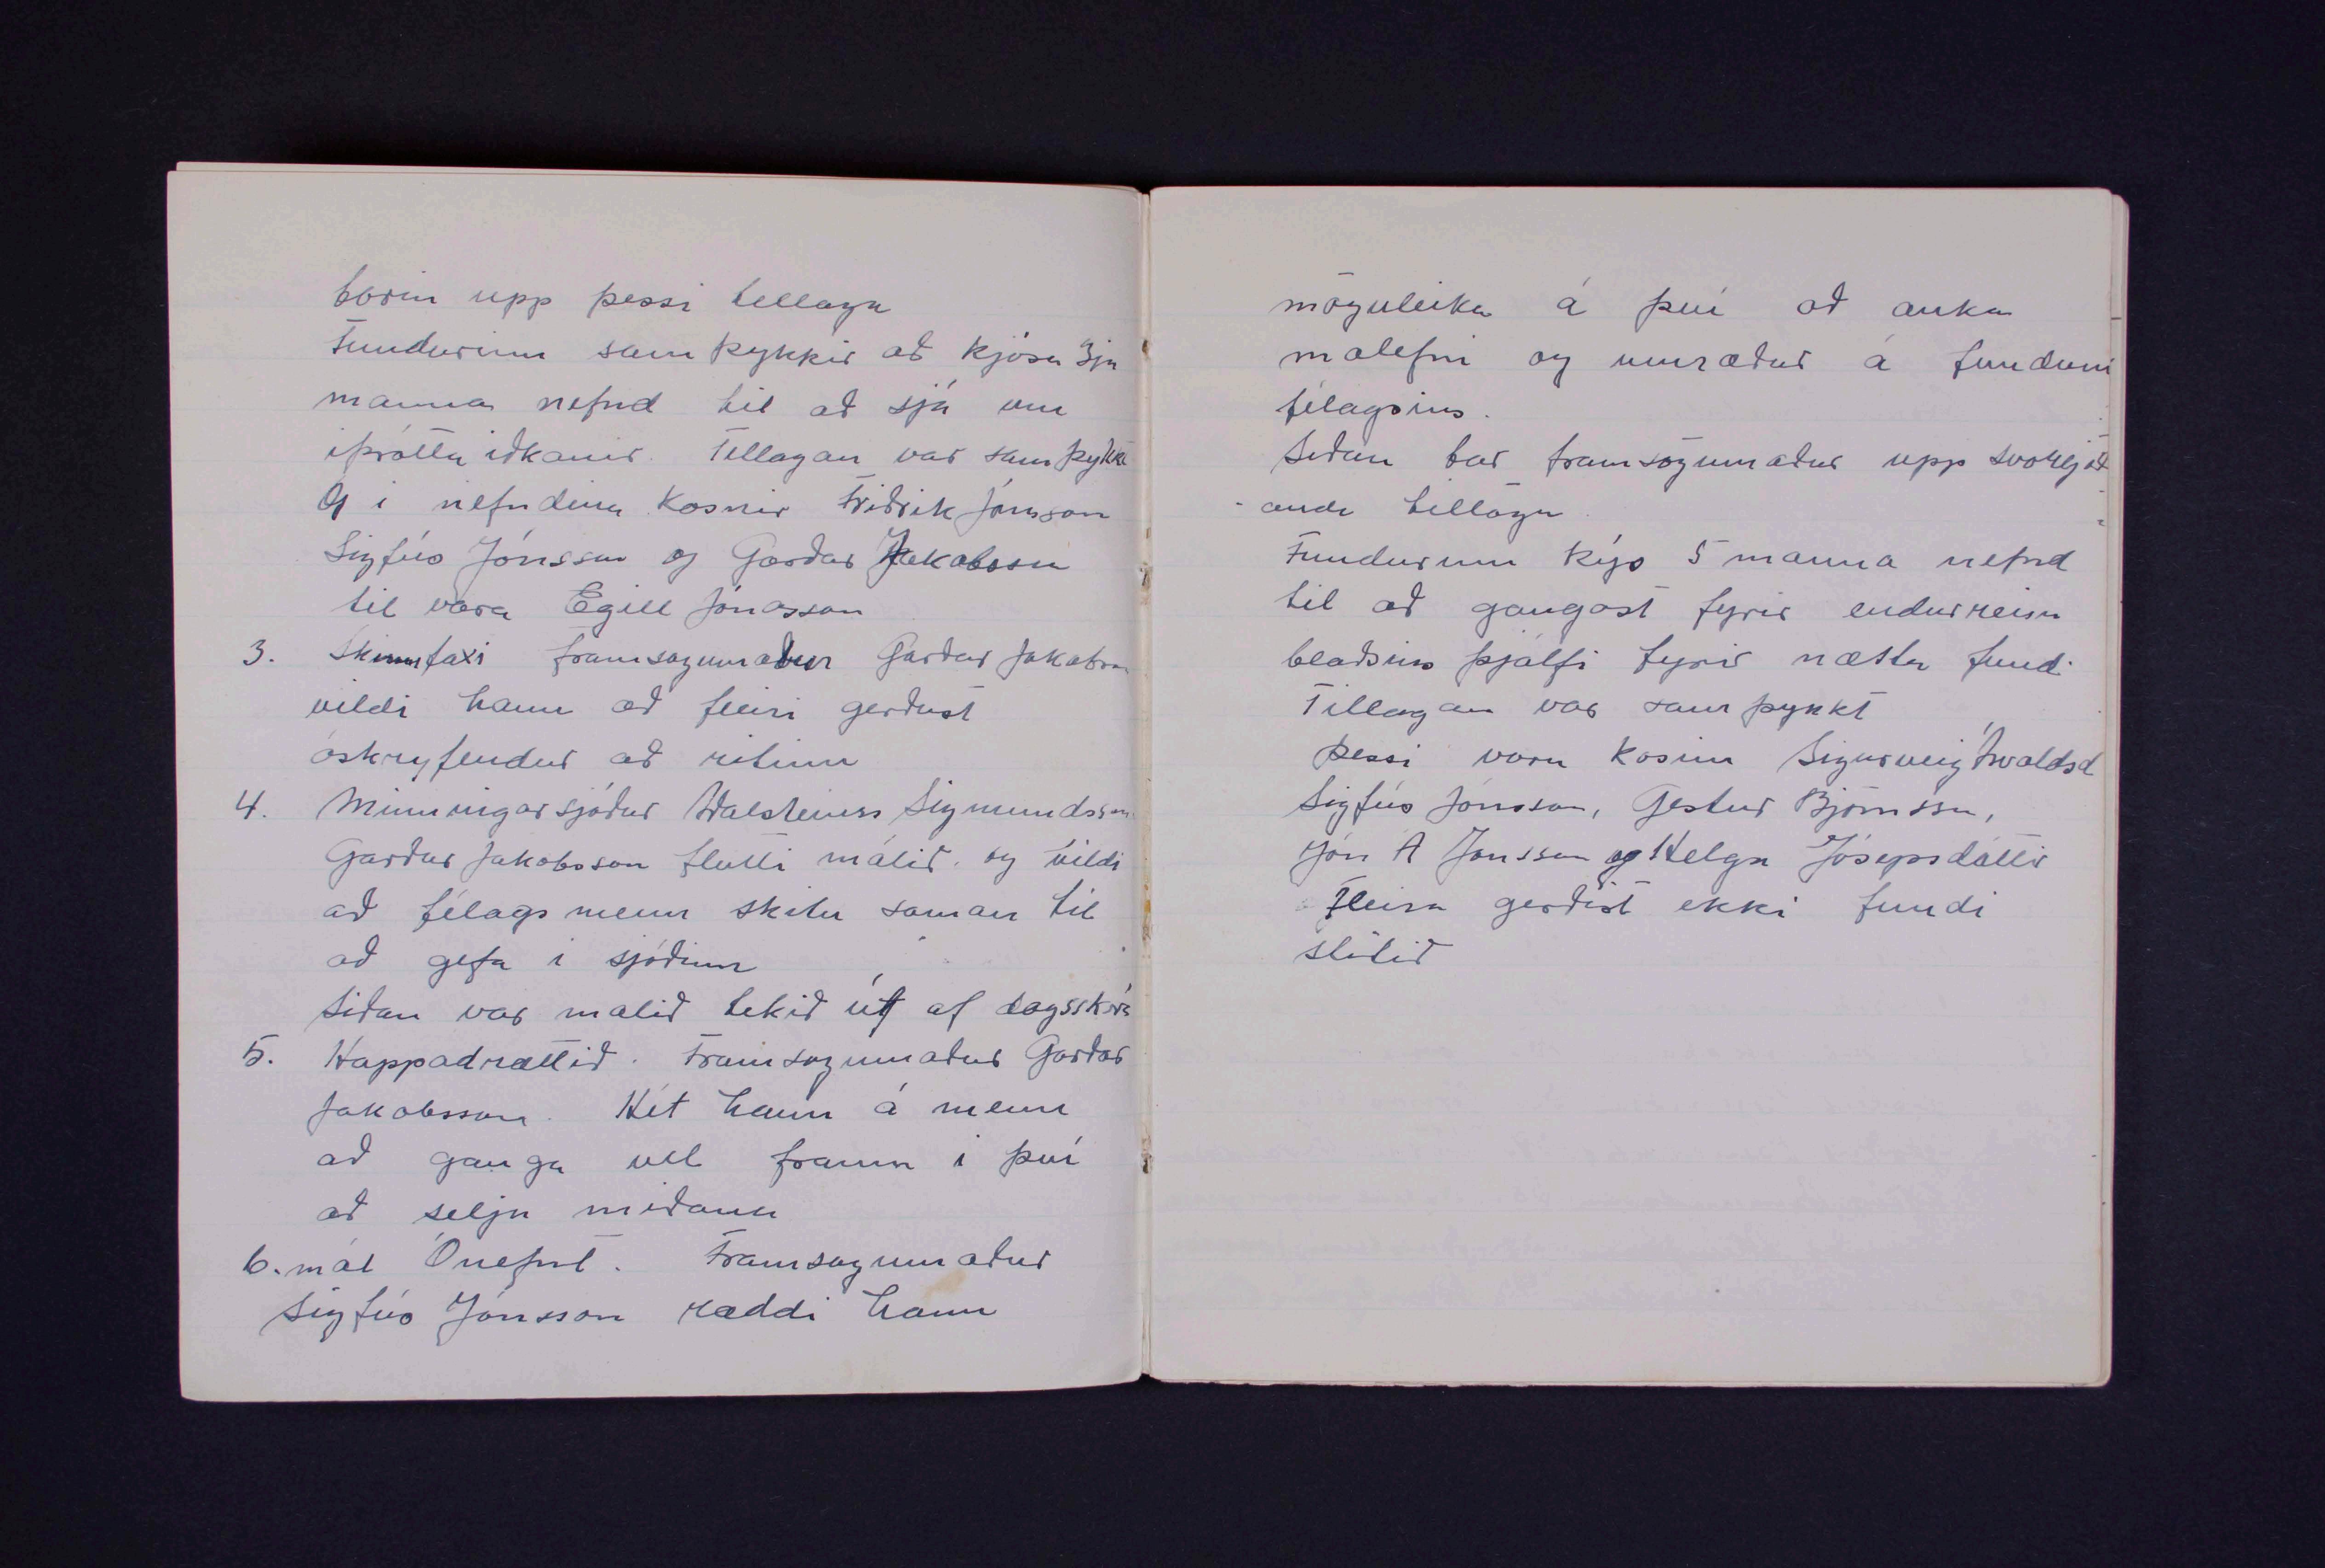 borin upp þessi tillaga
Fundurinn samþykkir að kjósa 3ja
manna nefnd til að sjá um
iþrótta iðkanir. Tillagan var samþykkt
Og i nefndina kosnir Friðrik Jónsson
Sigfús Jónsson og Garðar Jakobsson
til vara Egill Jónasson
3. Skinnfaxi framsögumaður Garðar Jakobsson
vildi hann að fleiri gerðust
áskryfendur að ritinu
4. Minningarsjóður Aðalsteinss Sigmundsson
Garðar Jakobsson flutti málið. og vildi
að félagsmenn skitu saman til
að gefa i sjóðinn
Siðan var málið tekið út af dagsskrá
5. Happadrættið. Framsögumaður Garðar
Jakobsson. Hét hann á menn
að ganga vel framm i því
að selja miðana
6. mál Ónefnt. Framsögumaður
Sigfús Jónsson ræddi hann
möguleika á því að auka
málefni og umræður á fundum
félagsins.
Siðan bar framsögumaður upp svohljóð
-andi tillögu.
Fundurinn kýs 5 manna nefnd
til að gangast fyrir endurreisn
blaðsins þjálfi fyrir næsta fund.
Tillagan var samþykkt
þessi voru kosinn Sigurveig
Sigfús Jónsson, Gestur Björnsson,
Jón A Jónsson og Helga Jósepsdóttir
Fleira gerðist ekki fundi
slitið